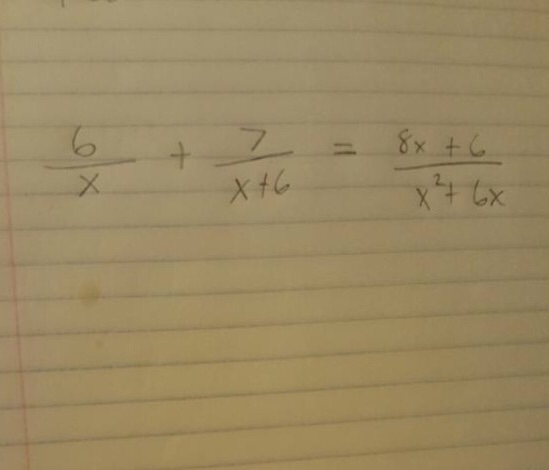 6/x + 7/(x+6) = (8x + 6)/(x² + 6x)